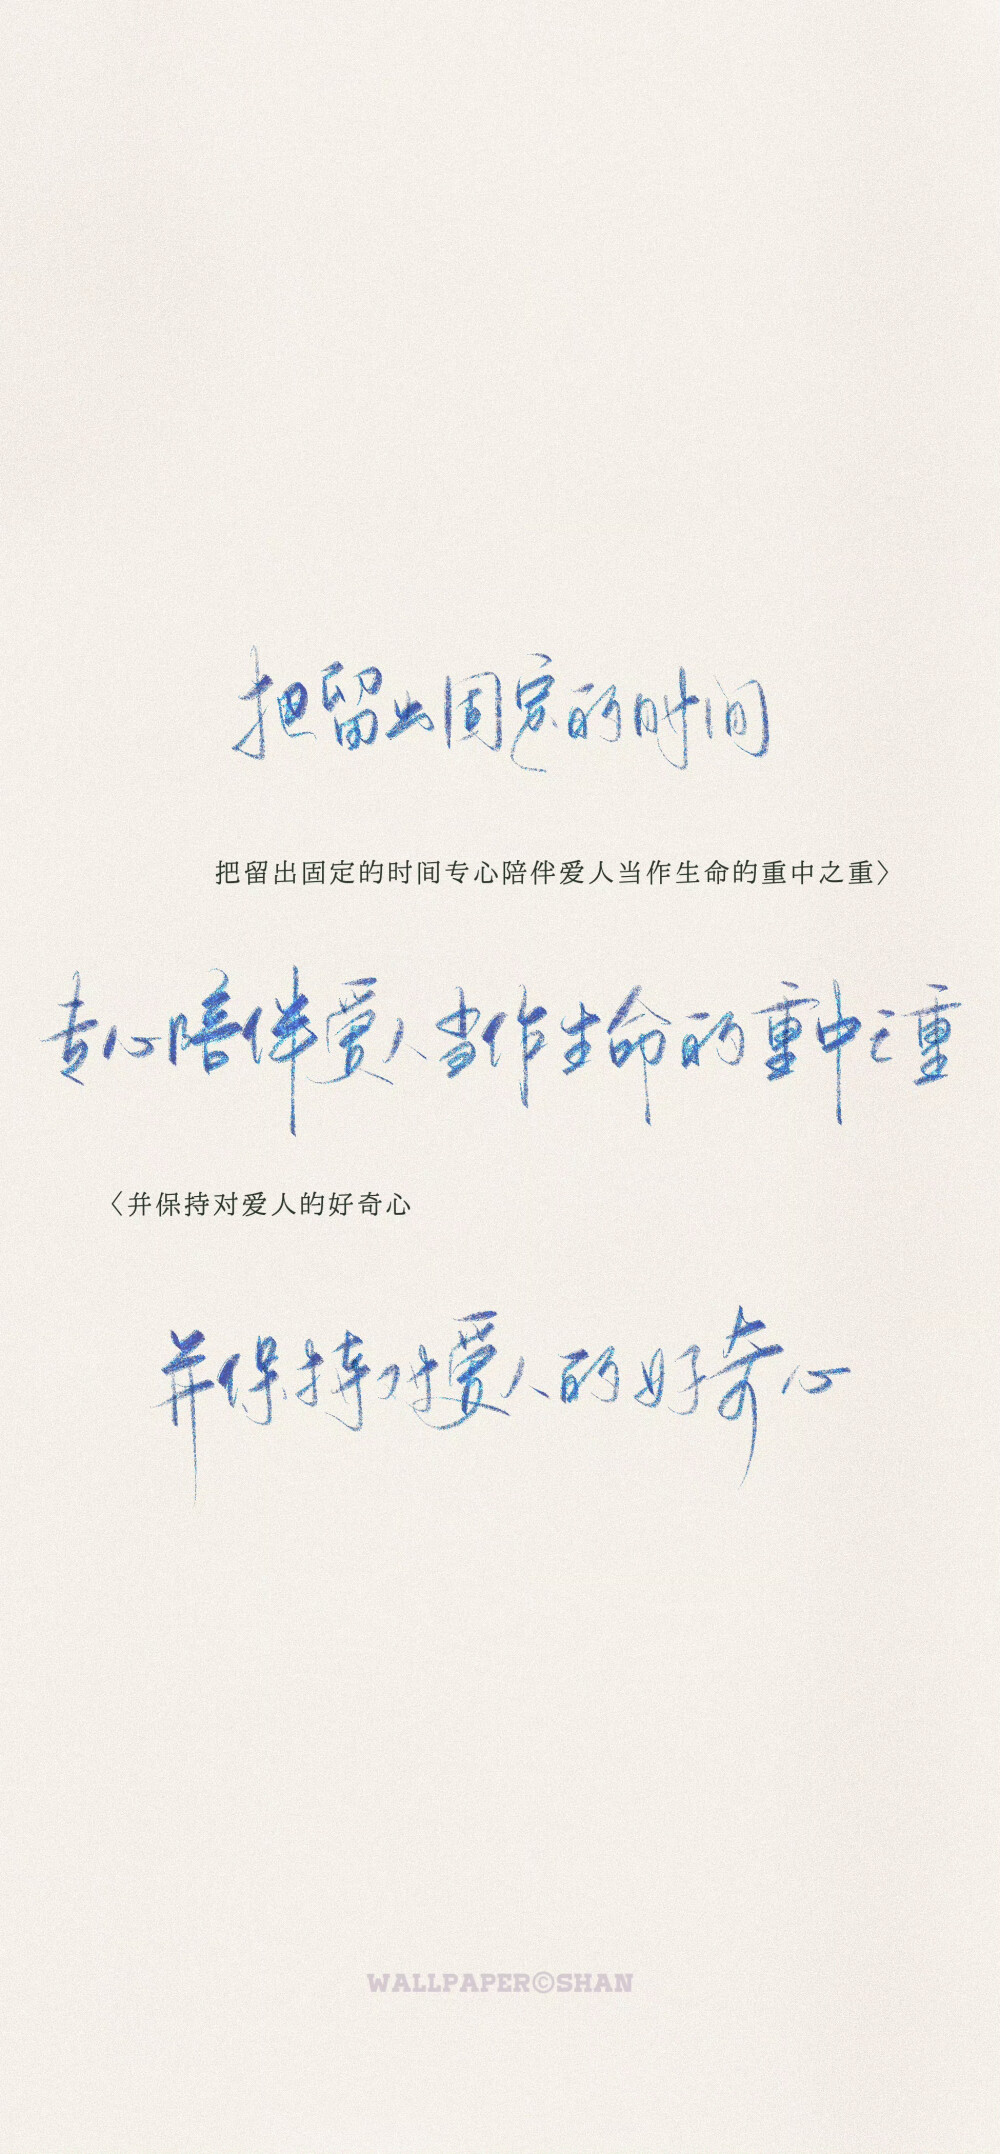 把留出固定的时间
把留出固定的时间专心陪伴爱人当作生命的重中之重〉
专心陪伴爱人当作生命的重中之重
〈并保持对爱人的好奇心
并保持对爱人的好奇心
WALLPAPER©SHAN